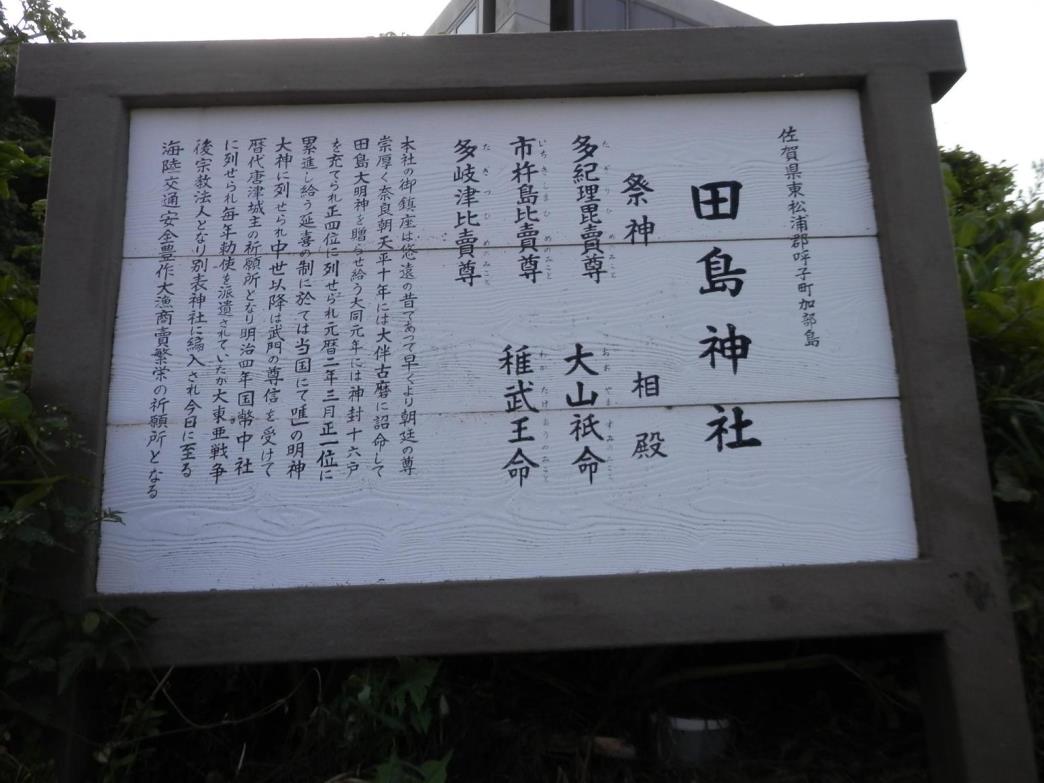 佐賀県東松浦郡呼子町加部島
田島神社
祭神 相殿
多紀理毘賣尊 大山祇命
市杵島比賣尊 稚武王命
多岐津比賣尊
本社の御鎮座は悠遠の昔であって早くより朝廷の尊
崇厚く奈良朝天平十年には大伴古麿に詔命して
田島大明神を贈らせ給う大同元年には神封十六戸
を充てられ正四位に列せられ元暦二年三月正一位に
累進し給う延喜の制に於ては当国にて唯一の明神
大神に列せられ中世以降は武門の尊信を受けて
歴代唐津城主の祈願所となり明治四年国幣中社
に列せられ毎年勅使を派遣されていたが大東亜戦争
後宗教法人となり別表神社に編入され今日に至る
海陸交通安全豊作大漁商賣繁栄の祈願所となる